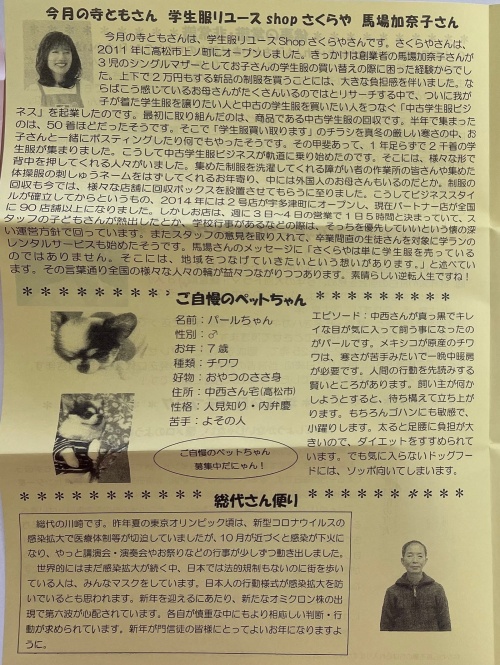 今月の寺ともさん 学生服リユースshopさくらや 馬場加奈子さん
今月の寺ともさんは、学生服リユースShopさくらやさんです。さくらやさんは、
2011年に高松市上ノ町にオープンしました。きっかけは創業者の馬場加奈子さんが
3児のシングルマザーとしてお子さんの学生服の買い替えの際に困った経験からでし
た。上下で2万円もする新品の制服を買うことには、大きな負担感を伴いました。な
らばこう感じているお母さんがたくさんいるのではとリサーチする中で、ついに我が
子が着た学生服を譲りたい人と中古の学生服を買いたい人をつなぐ「中古学生服ビジ
ネス」を起業したのです。最初に取り組んだのは、商品である中古学生服の回収です。半年で集まった
のは、50着ほどだったそうです。そこで「学生服買い取ります」のチラシを真冬の厳しい寒さの中、お
子さんと一緒にポスティングしたり何でもやったそうです。その甲斐あって、1年足らずで2千着の学
生服が集まりました。こうして中古学生服ビジネスが軌道に乗り始めたのです。そこには、様々な形で
背中を押してくれる人々がいました。集めた制服を洗濯してくれる障がい者の作業所の皆さんや集めた
体操服の刺しゅうネームをはずしてくれるお年寄り、中には外国人のお母さんもいるのだとか。制服の
回収も今では、様々な店舗に回収ボックスを設置させてもらうに至りました。こうしてビジネススタイ
ルが確立してからというもの、2014年には2号店が宇多津町にオープン。現在パートナー店が全国
に90店舗以上になりました。しかしお店は、週に3日~4日の営業で1日5時間と決まっていて、ス
タッフの子どもさんが熱出したとか、学校行事があるなどの際は、そっちを優先していいという懐の深
い運営方針で回っています。またスタッフの意見を取り入れて、卒業間直の生徒さんを対象に学ランの
レンタルサービスも始めたそうです。馬場さんのメッセージに「さくらやは単に学生服を売っている
のではありません。そこには、地域をつなげていきたいという想いがあります。」と述べてい
ます。その言葉通り全国の様々な人々の輪が益々つながりつつあります。素晴らしい逆転人生ですね!
ご自慢のペットちゃん
名前:パールちゃん
性別:♂
お年:7歳
種類:チワワ
好物:おやつのささ身
住所:中西さん宅(高松市)
性格:人見知り・内弁慶
苦手:よその人
ご自慢のペットちゃん
募集中だにゃん!
エピソード:中西さんが真っ黒でキレ
イな目が気に入って飼う事になったの
がパールです。メキシコが原産のチワ
ワは、寒さが苦手みたいで一晩中暖房
が必要です。人間の行動を先読みする
賢いところがあります。飼い主が何か
しようとすると、待ち構えて立ち上が
ります。もちろんゴハンにも敏感で、
小躍りします。太ると足腰に負担が大
きいので、ダイエットをすすめられて
います。でも気に入らないドッグフー
ドには、ソッポ向いてしまいます。
総代さん便り
総代の川崎です。昨年夏の東京オリンピック頃は、新型コロナウイルスの
感染拡大で医療体制等が切迫していましたが、10月が近づくと感染が下火に
なり、やっと講演会・演奏会やお祭りなどの行事が少しずつ動き出しました。
世界的にはまだ感染拡大が続く中、日本では法的規制もないのに街を歩い
ている人は、みんなマスクをしています。日本人の行動様式が感染拡大を防
いでいるとも思われます。新年を迎えるにあたり、新たなオミクロン株の出
現で第六波が心配されています。各自が慎重な中にもより相応しい判断・行
動が求められています。新年が門信徒の皆様にとってよいお年になりますよ
うに。